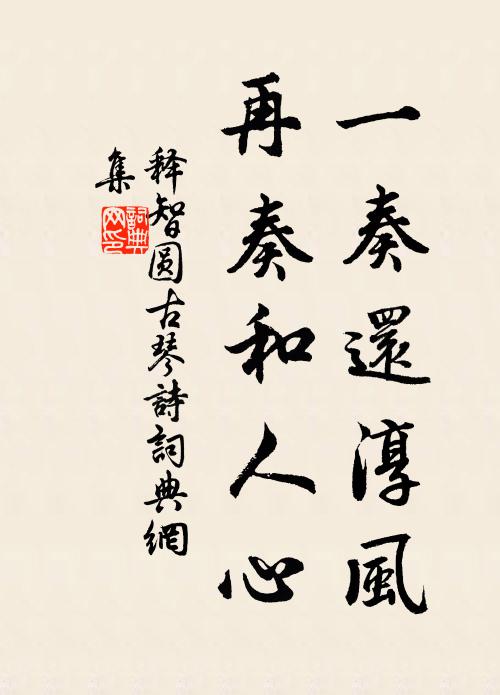 一奏還淳風
再奏和人心
释智圓古琴詩詞典網
集
詞典
网印